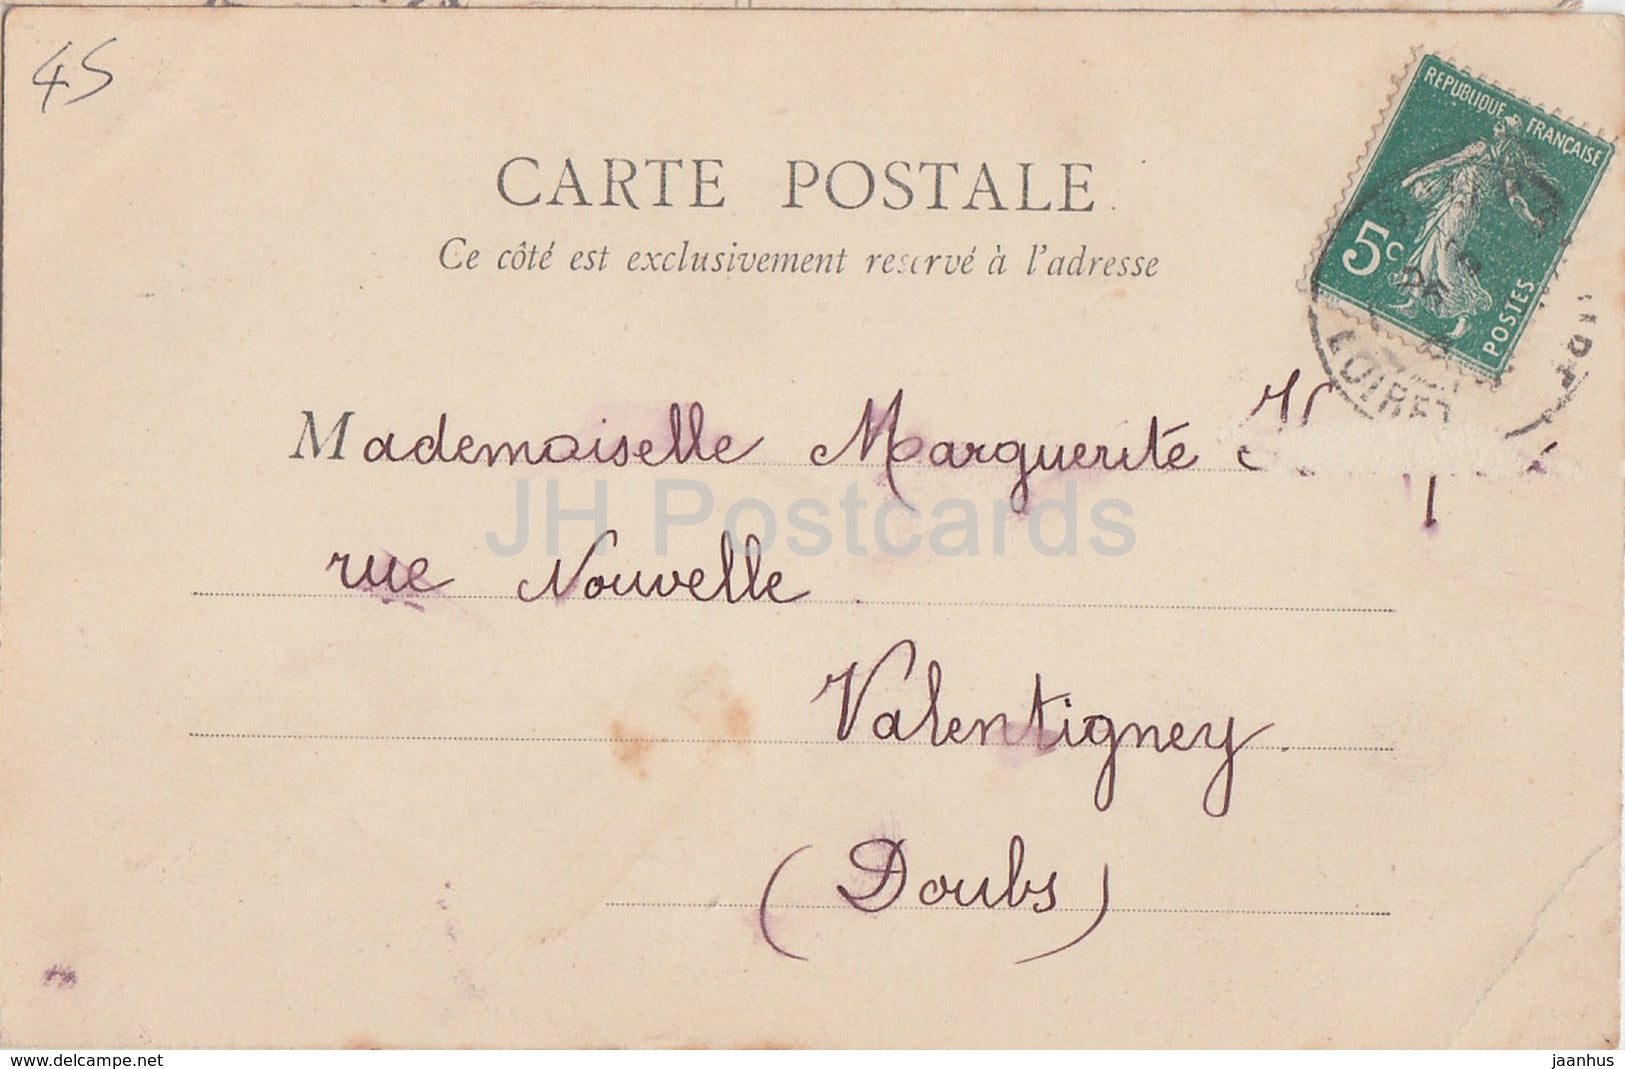 45
CARTE POSTALE
Ce côté est exclusivement reservé à l'adresse
REPUBLIQUE FRANÇAISE
5c
POSTES
LOIRET
Mademoiselle Marguerite
JH Postcards
rue Nouvelle
Valentigney
(Doubs)
www.delcampe.net
jaanhus